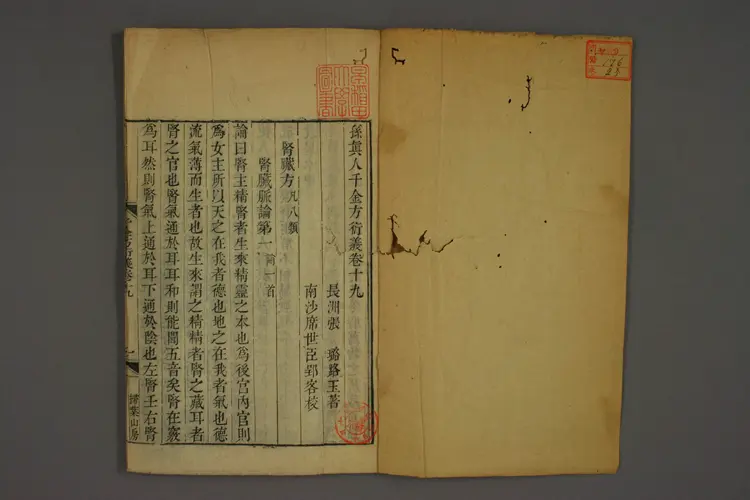 孫眞人千金方衍義卷十九
長洲張 璐路玉著
南沙席世臣郢客校
腎臟方 凡八類
腎臟脈論第一 論一首
論曰腎主精腎者生來精靈之本也爲後宮內官則
爲女主所以天之在我者德也地之在我者氣也德
流氣薄而生者也故生來謂之精精者腎之藏耳者
腎之官也腎氣通於耳耳和則能聞五音矣腎在竅
爲耳然則腎氣上通於耳下通於陰也左腎壬右腎
千金方衍義卷十九
一
掃葉山房